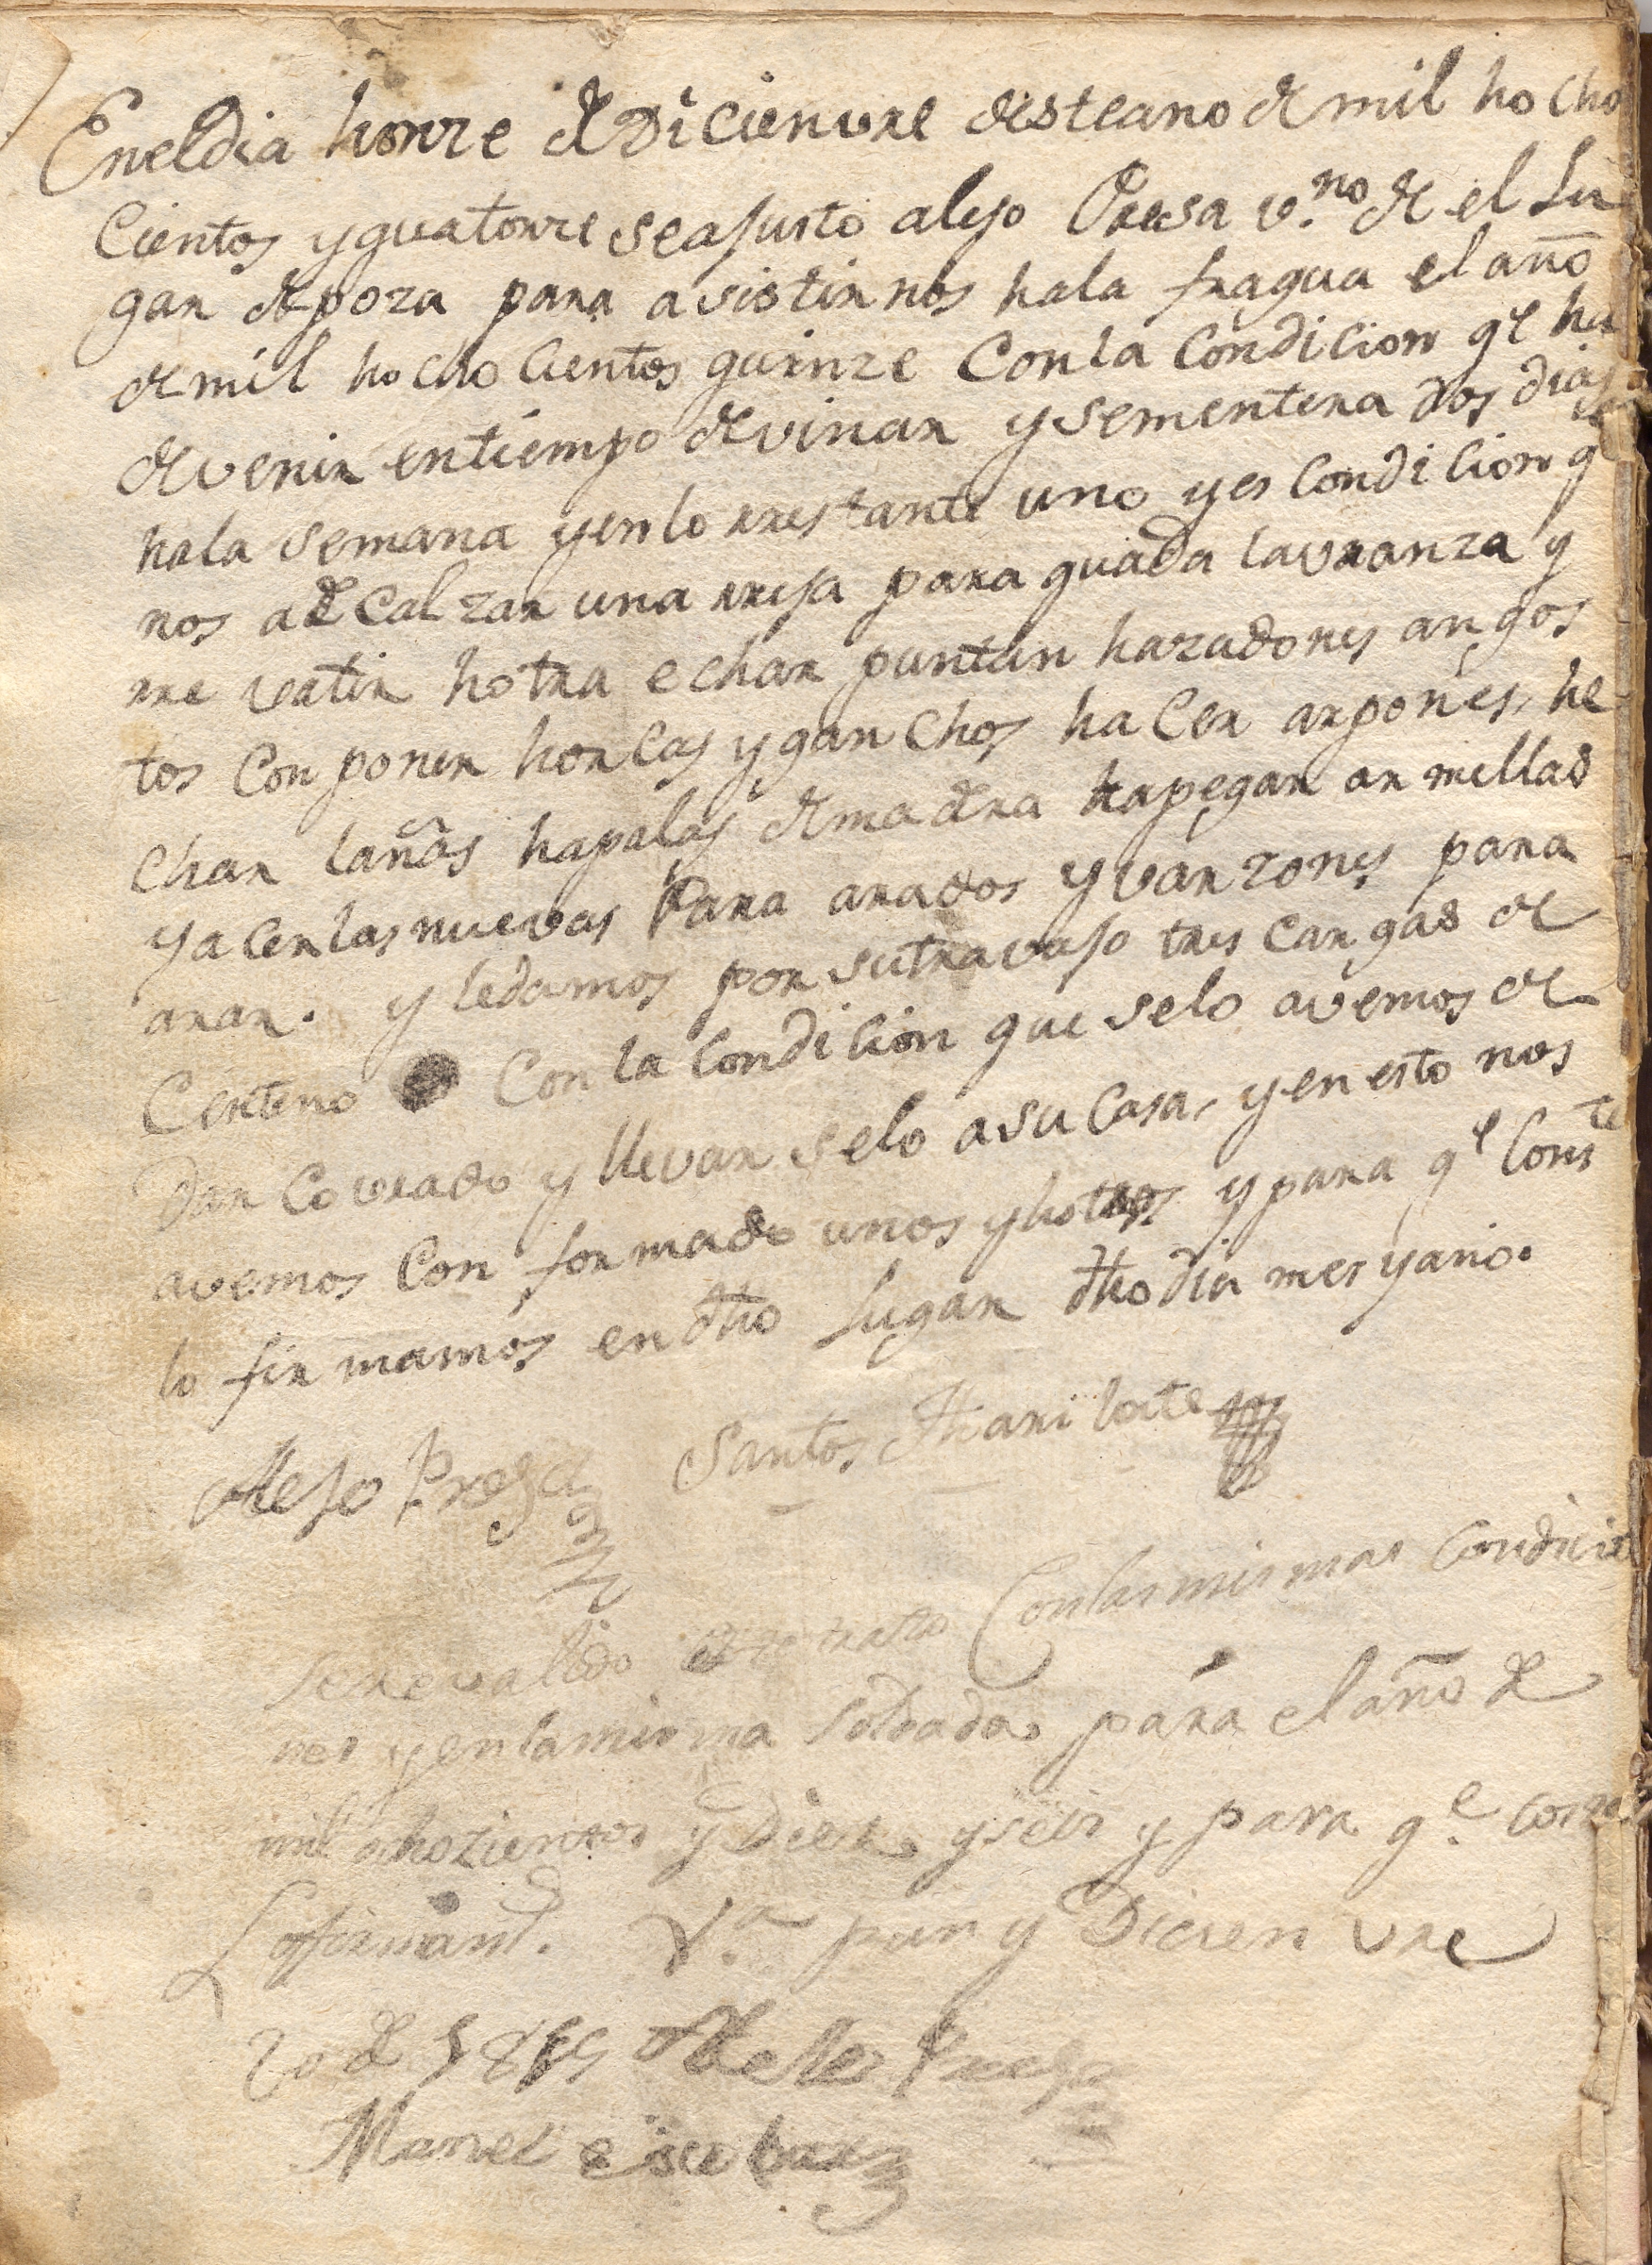 En el dia honze de Dicienvre desteano de mil hocho
Cientos y guatorze se ajusto alejo Presa v.no de el Lu
gar de poza para asistirnos hala fragua el año
de mil hocho Cientos guinze Con la Condicion qe ha
de venir en tiempo de vinar y sementera dos dias
hala semana y en lo rrestante uno y es Condicion qe
nos a de Calzar una rreja para guada lavranza y
rre vatir hotra echar puntas hazadones angos
tos Con poner horcas y ganchos hacer arpones, he
char lañas hapalas de madera hapegar armellas
y acerlas nuevas Para arados y varzones para
arar. y le damos por su travajo tres Cargas de
Centeno Con la Condicion que selo avemos de
dar Covrado y llevar selo a su Casa, y en esto nos
avemos Con formado unos y hotros y para qe Conste
lo firmamos en dho lugar dho dia mes y año.
Alejo Presa Santos Mari
se rrevalido Con las mismas Condicio
nes y en la misma soldada para el año de
mil ochozientos y Diez y seis y para q.e Cons
Lo firmam.s V.a y Dicienvre
20 de 1815 Presa
Manel escobar